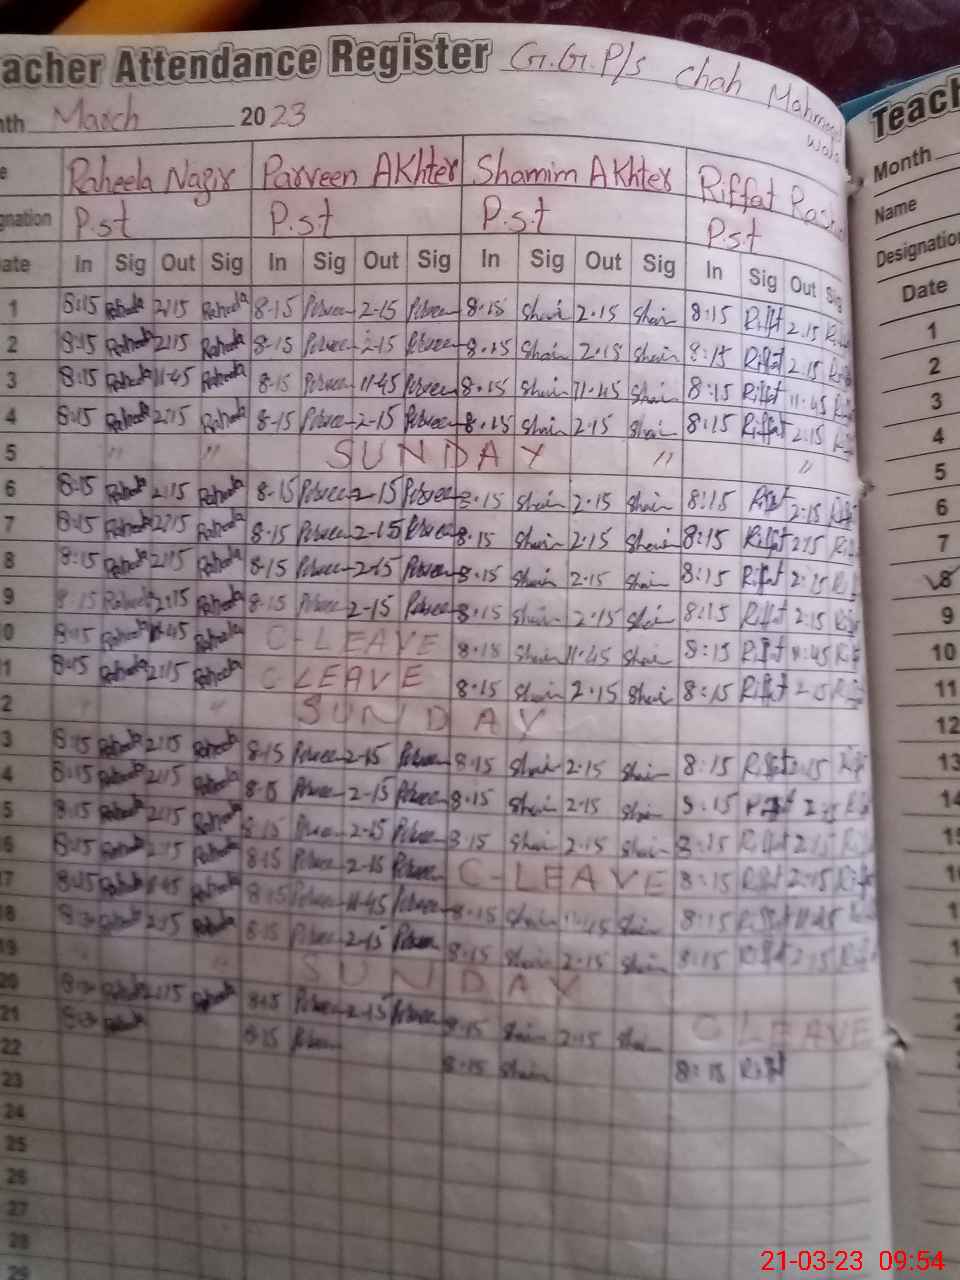 Teacher Attendance Register G.G.P/s Chah Mahmood Wala
Month March 2023
Raheela Nazir Parveen AKhter Shamim AKhter Riffat
Designation P.s.t P.s.t P.s.t P.s.t
Date In Sig Out Sig In Sig Out Sig In Sig Out Sig In Sig Out Sig
1 8:15 Raheela 2:15 Raheela 8-15 Parveen 2-15 Parveen 8.15 Sham 2.15 Sham 8:15 Riffat 2:15
2 8:15 Raheela 2:15 Raheela 8-15 Parveen 2-15 Parveen 8.15 Sham 2.15 Sham 8:15 Riffat 2:15
3 8:15 Raheela 11-45 Raheela 8-15 Parveen 11-45 Parveen 8.15 Sham 11.45 Sham 8:15 Riffat 11:45
4 8:15 Raheela 2:15 Raheela 8-15 Parveen 2-15 Parveen 8.15 Sham 2.15 Sham 8:15 Riffat 2:15
5 " " SUNDAY " "
6 8:15 Raheela 2:15 Raheela 8-15 Parveen 2-15 Parveen 8.15 Sham 2.15 Sham 8:15 Riffat 2:15
7 8:15 Raheela 2:15 Raheela 8-15 Parveen 2-15 Parveen 8.15 Sham 2.15 Sham 8:15 Riffat 2:15
8 8:15 Raheela 2:15 Raheela 8-15 Parveen 2-15 Parveen 8.15 Sham 2.15 Sham 8:15 Riffat 2:15
9 8:15 Raheela 2:15 Raheela 8-15 Parveen 2-15 Parveen 8.15 Sham 2.15 Sham 8:15 Riffat 2:15
10 8:15 Raheela 11-45 Raheela C-LEAVE 8.15 Sham 11.45 Sham 8:15 Riffat 11:45
11 8:15 Raheela 2:15 Raheela C LEAVE 8.15 Sham 2.15 Sham 8:15 Riffat 2:15
12 " SUNDAY
13 8:15 Raheela 2:15 Raheela 8-15 Parveen 2-15 Parveen 8.15 Sham 2.15 Sham 8:15 Riffat 2:15
14 8:15 Raheela 2:15 Raheela 8-15 Parveen 2-15 Parveen 8.15 Sham 2.15 Sham 8:15 Riffat 2:15
15 8:15 Raheela 2:15 Raheela 8-15 Parveen 2-15 Parveen 8.15 Sham 2.15 Sham 8:15 Riffat 2:15
16 8:15 Raheela 2:15 Raheela 8-15 Parveen 2-15 Parveen C-LEAVE 8:15 Riffat 2:15
17 8:15 Raheela 11-45 Raheela 8-15 Parveen 11-45 Parveen 8.15 Sham 11.45 Sham 8:15 Riffat 11:45
18 Raheela 2:15 Raheela 8-15 Parveen 2-15 Parveen 8.15 Sham 2.15 Sham 8:15 Riffat 2:15
19 " SUNDAY
20 Raheela 2:15 Raheela 8-15 Parveen 2-15 Parveen 8.15 Sham 2.15 Sham C LEAVE
21 Raheela 8-15 Parveen 8.15 Sham 8:15 Riffat
22
23
24
25
26
27
28
29
Teach
Month
Name
Designation
Date
1
2
3
4
5
6
7
8
9
10
11
12
13
14
21-03-23 09:54